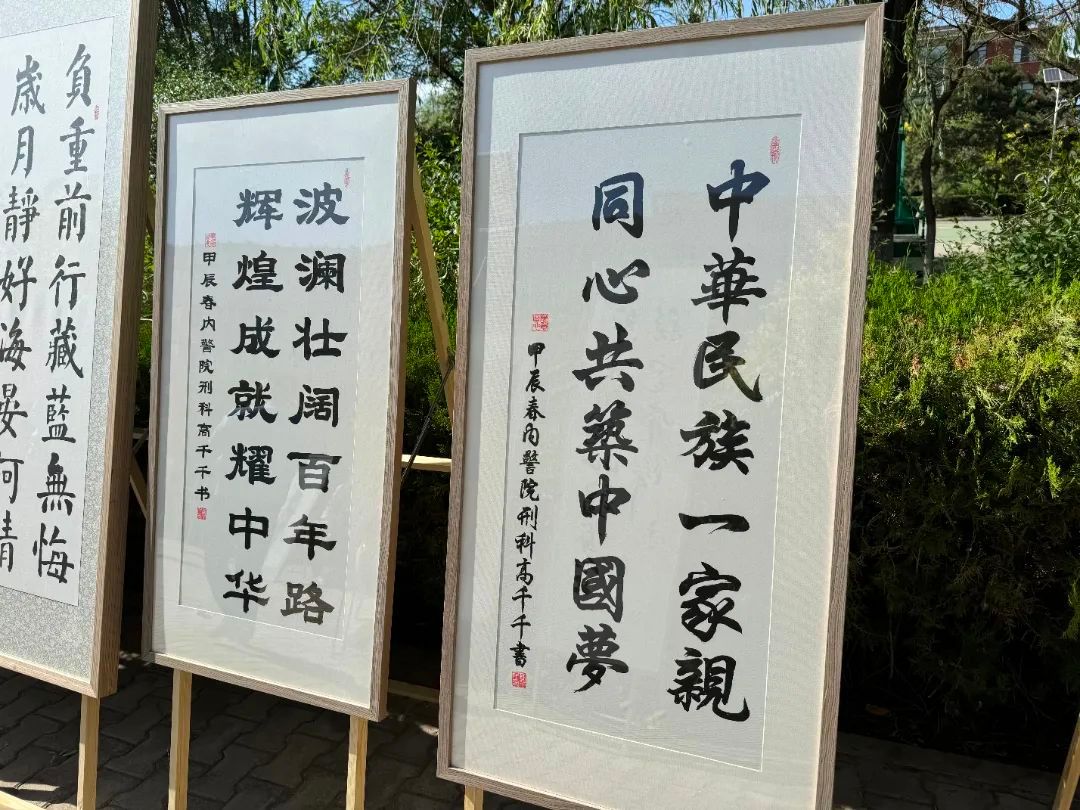 中華民族一家親
同心共築中國夢
甲辰春内警院刑科高千千書
波澜壮阔百年路
辉煌成就耀中华
甲辰春内警院刑科高千千书
負重前行藏藍無悔
歲月靜好海晏河清